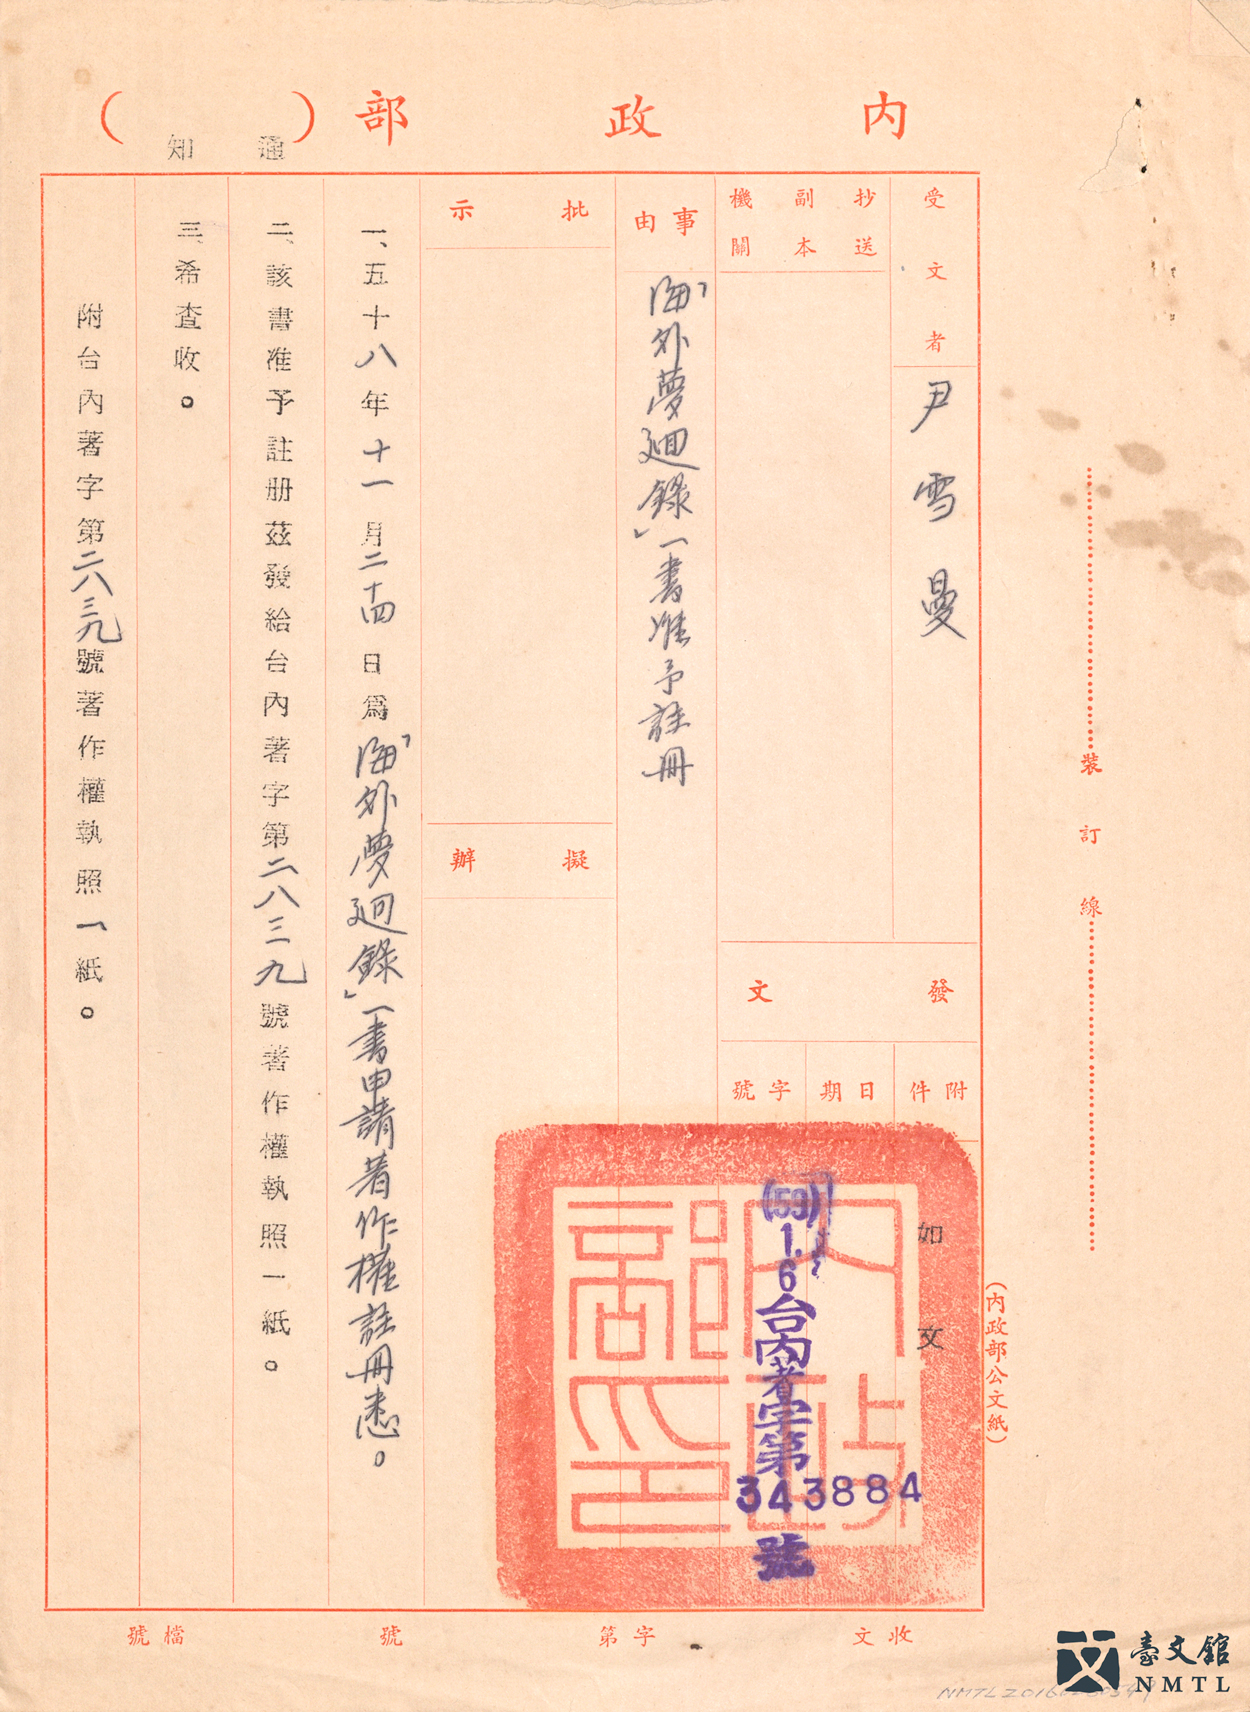 內政部(通知)
受文者
尹雪曼
抄送
副本
機關
事由
「海外夢廻錄」一書准予註冊
批示
擬辦
發文
附件
如文
日期
字號
(59)1.6台內著字第
343884
號
一、五十八年十一月二十四日為「海外夢廻錄」一書申請著作權註冊悉。
二、該書准予註册茲發給台內著字第二八三九號著作權執照一紙。
三、希查收。
附台內著字第二八三九號著作權執照一紙。
裝訂線
(內政部公文紙)
內政部印
收文
字第
號
檔號
臺文館
NMTL